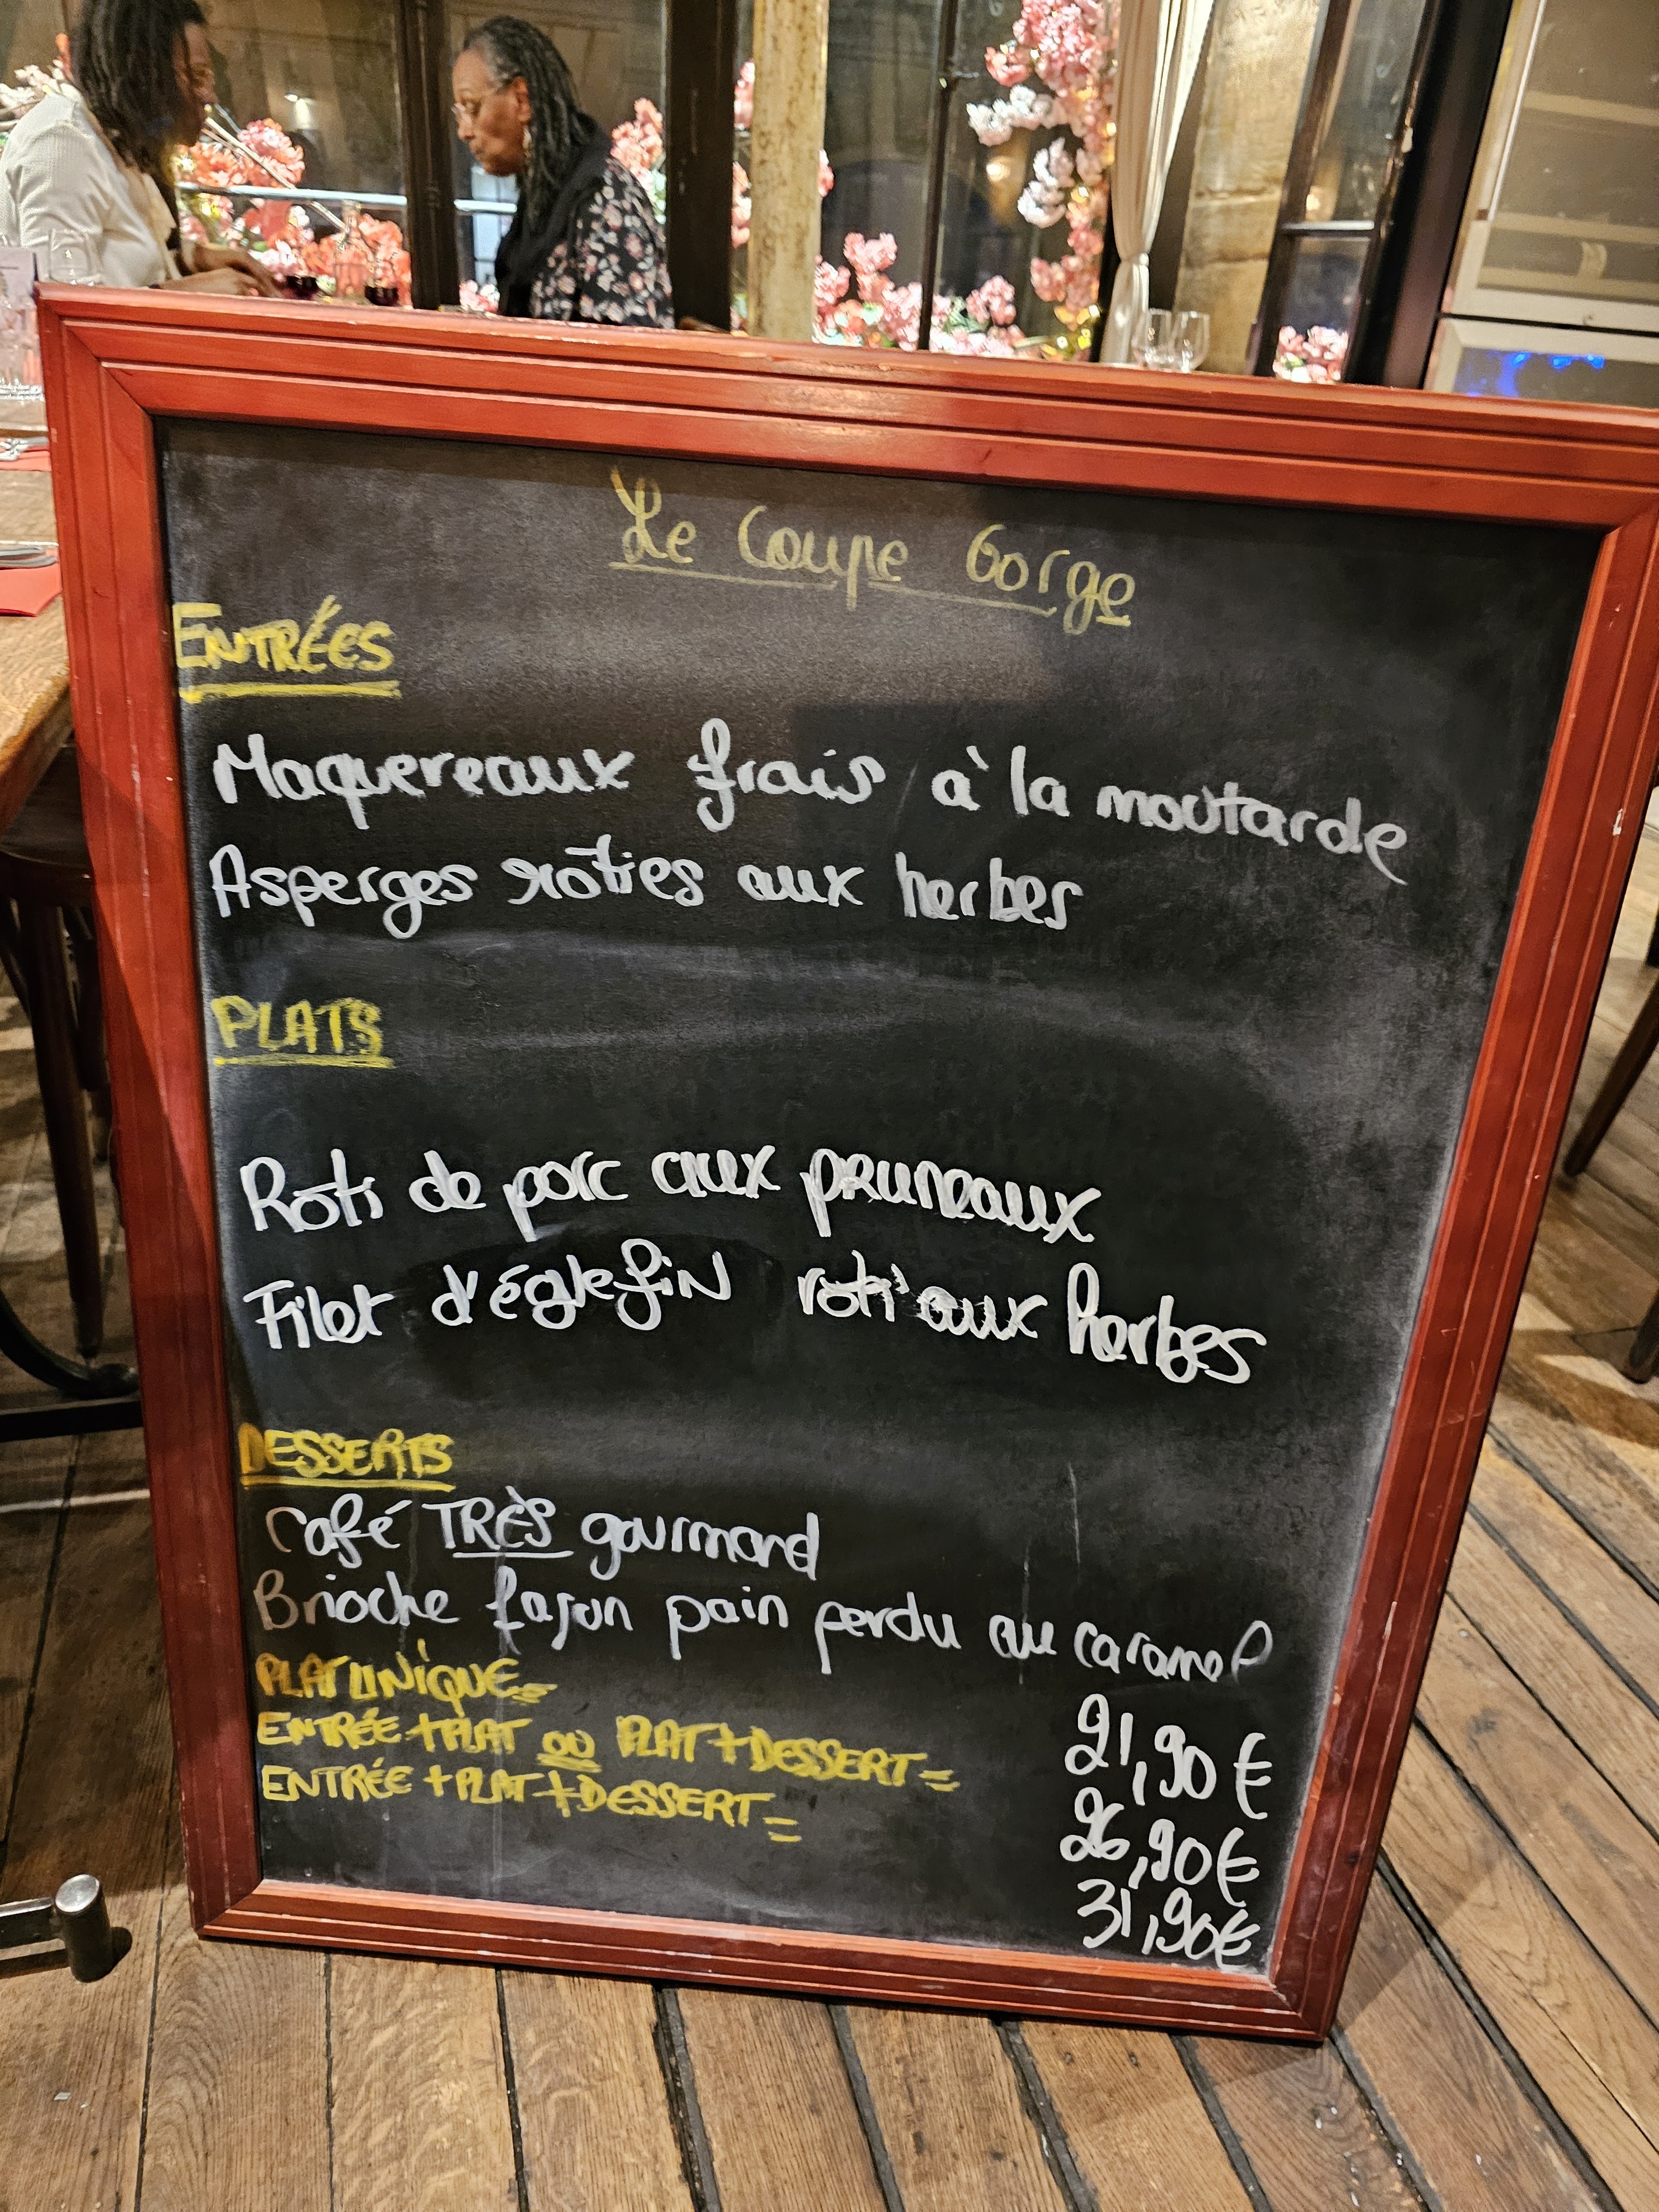 Le Coupe Gorge
ENTRÉES
Maquereaux frais à la moutarde
Asperges rôties aux herbes
PLATS
Roti de porc aux pruneaux
Filet d'églefin roti aux herbes
DESSERTS
Café TRÈS gourmand
Brioche façon pain perdu au caramel
PLAT UNIQUE=
21,90€
ENTRÉE+PLAT OU PLAT+DESSERT=
26,90€
ENTRÉE+PLAT+DESSERT=
31,90€